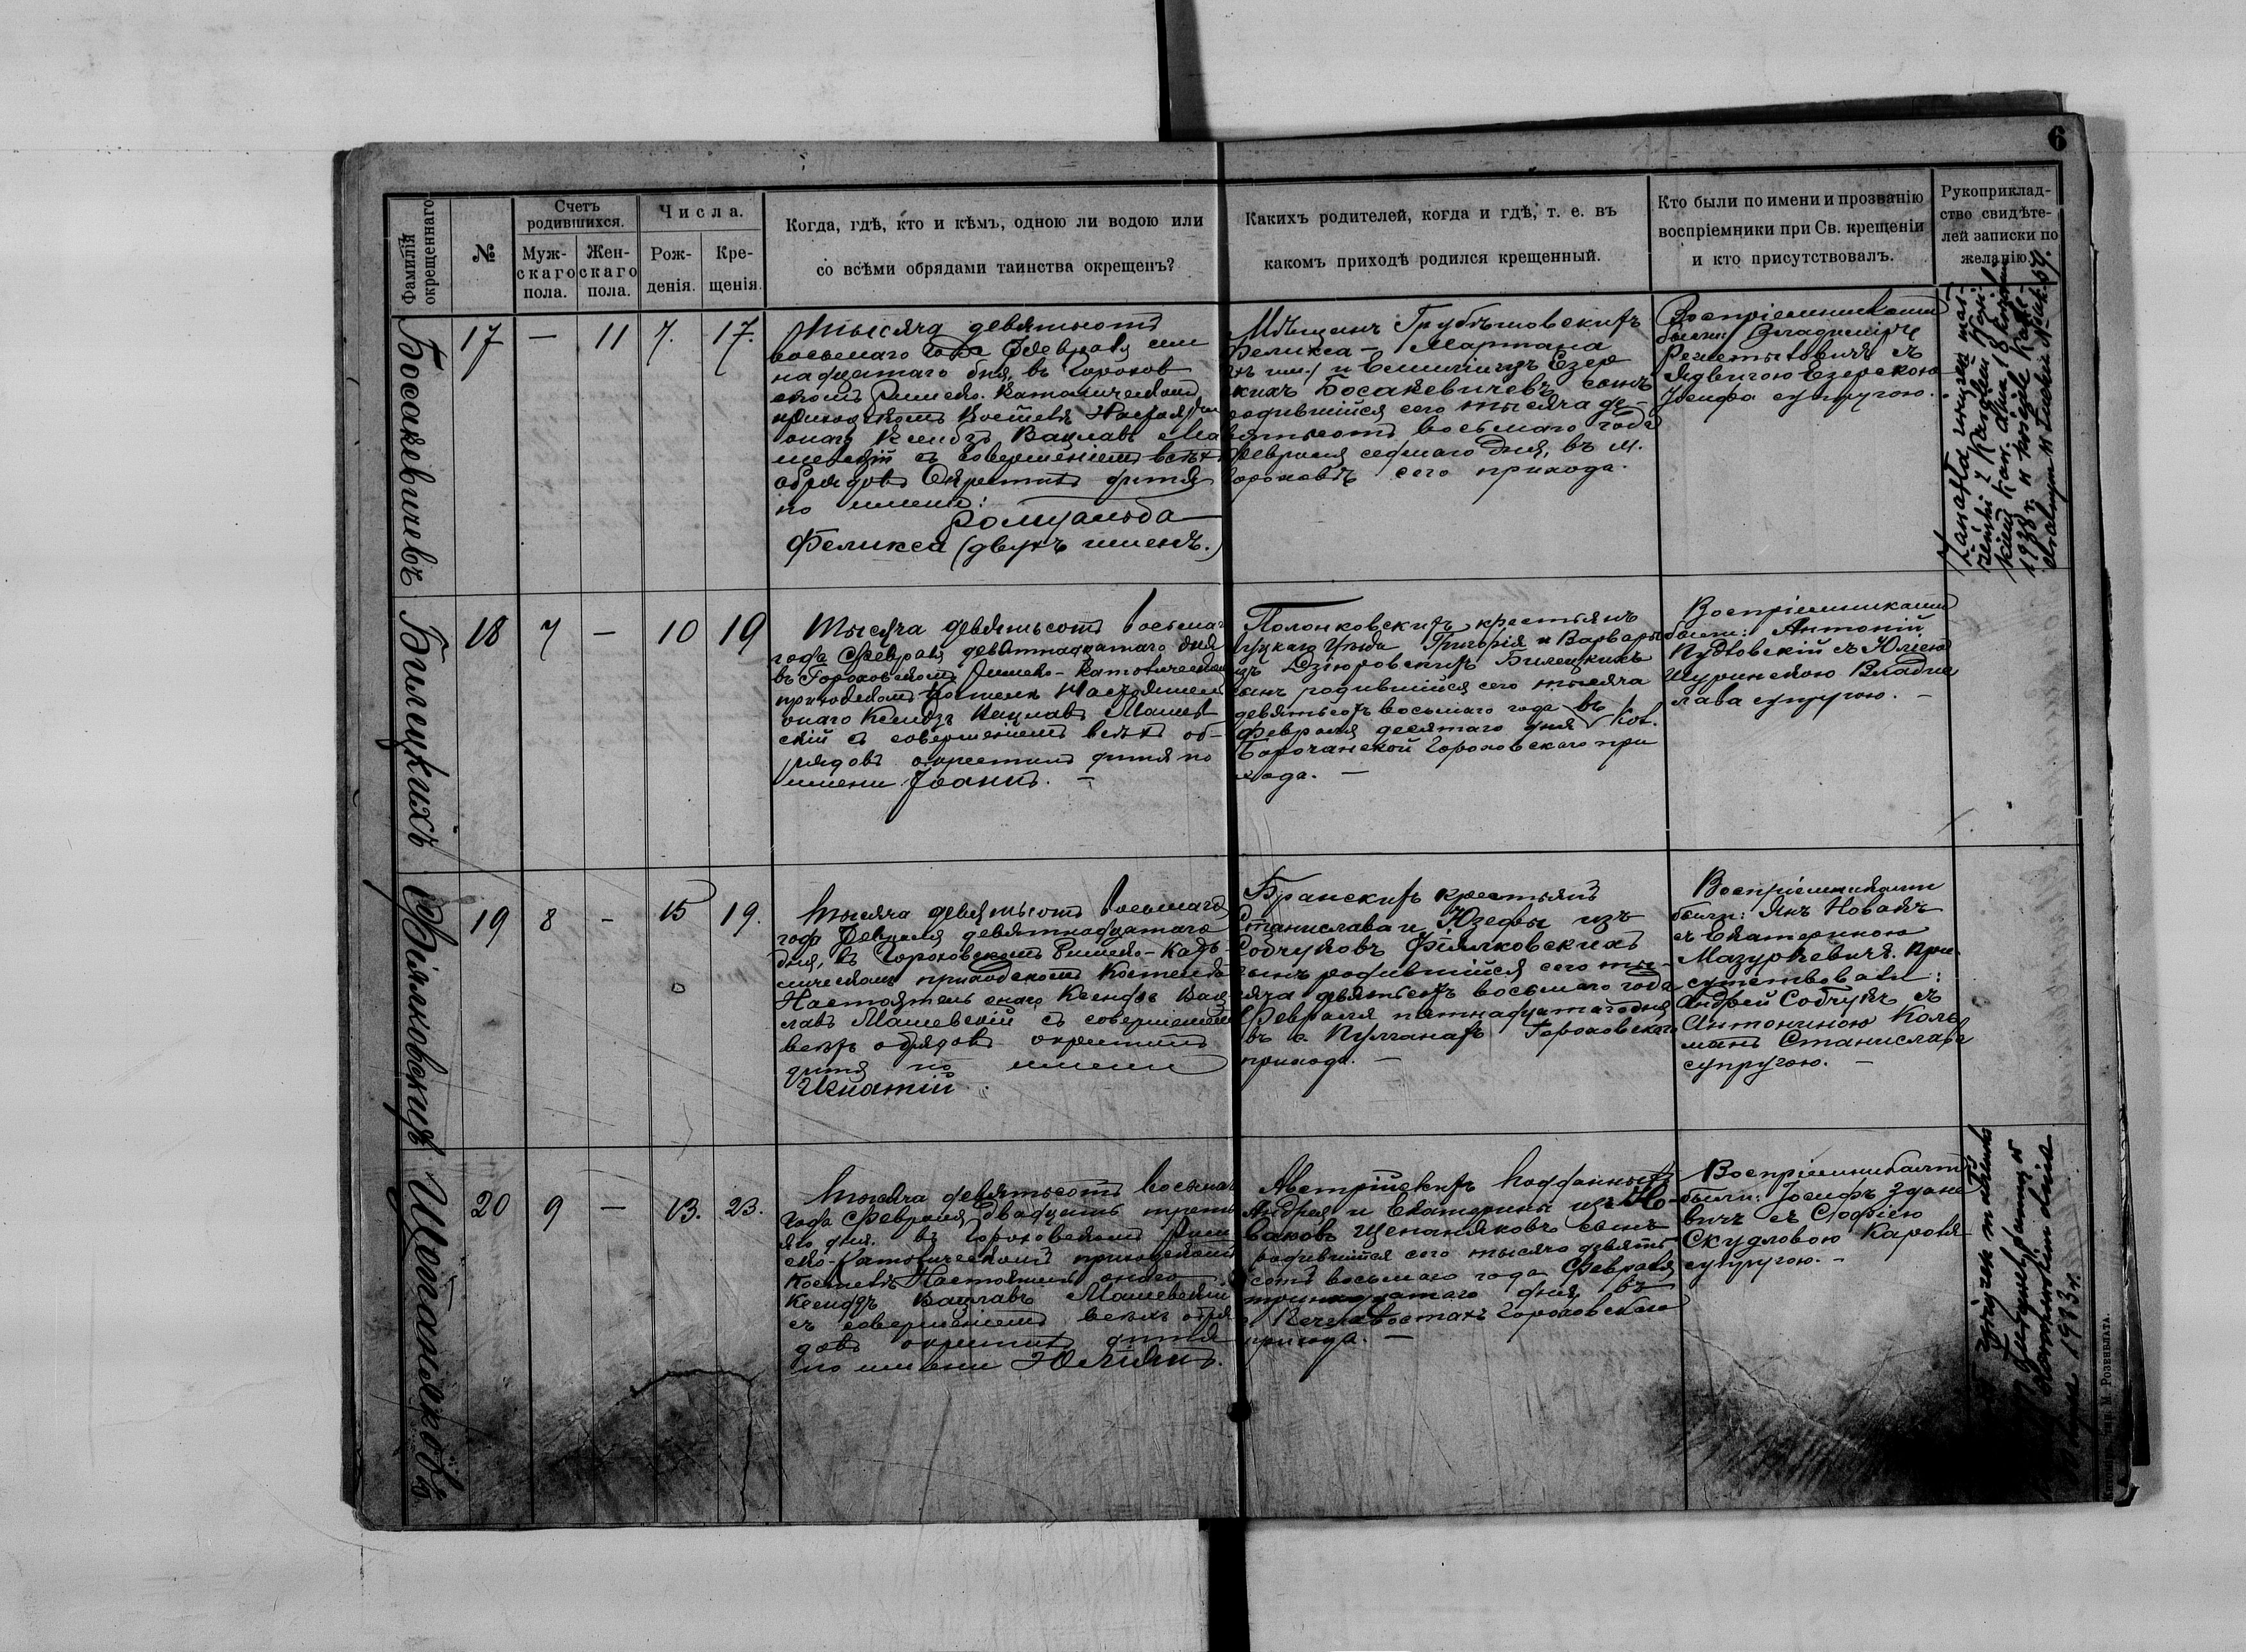 6
Фамилія окрещеннаго
№
Счетъ родившихся.
Муж-
скаго
пола.
Жен-
скаго
пола.
Числа.
Рож-
денія.
Кре-
щенія.
Когда, гдѣ, кто и кѣмъ, одною ли водою или
со всѣми обрядами таинства окрещенъ?
Какихъ родителей, когда и гдѣ, т. е. въ
какомъ приходѣ родился крещенный.
Кто были по имени и прозванію
воспріемники при Св. крещеніи
и кто присутствовалъ.
Рукоприклад-
ство свидѣте-
лей записки по
желанію.
Босакевичевъ
17
—
11
7.
17.
Тысяча девятьсотъ
восьмаго года Февраля сем
надцатаго дня, въ Горохов
скомъ Римско-Католическомъ
приходскомъ Костелѣ
онаго Ксендзъ Вацлавъ Ма
шевскій съ совершеніемъ всѣхъ
обрядовъ окрестилъ дитя
по имени:
Ромуальда
Феликса (двухъ именъ.)
Мѣщанъ Грубешовскихъ
Феликса - Мартина
и Емиліи изъ Езер
скихъ Босакевичевъ сынъ
родившійся сего тысяча де-
вятьсотъ восьмаго года
Февраля седьмаго дня, въ м.
Гороховъ сего прихода.
Воспріемниками
были: Владиміръ
съ
Ядвигою Езерскою
Іосифа супругою.
Билецкихъ
18
7
—
10
19
Тысяча девятьсотъ восьмаго
года Февраля девятнадцатаго дня
въ Гороховскомъ Римско-Католическомъ
приходскомъ Костелѣ Настоятель
онаго Ксендзъ Вацлавъ Машев
скій съ совершеніемъ всѣхъ об-
рядовъ окрестилъ дитя по
имени Іоаннъ. —
Полонковскихъ крестьянъ
Луцкаго уѣзда Григорія и Варвары
изъ Дзюровскихъ Билецкихъ
сынъ родившійся сего тысяча
девятьсотъ восьмаго года
Февраля десятаго дня въ кол.
Борочанской Гороховскаго при
хода. —
Воспріемниками
были: Антоній
съ Юліею
Щуринскою Владис
лава супругою. —
Фіялковскихъ
19
8
-
15
19.
Тысяча девятьсотъ восьмаго
года Февраля девятнадцатаго
дня, въ Гороховскомъ Римско-Като-
лическомъ приходскомъ Костелѣ
Настоятель онаго Ксендзъ Вац
лавъ Машевскій съ совершеніемъ
всѣхъ обрядовъ окрестилъ
дитя по имени
Игнатій.
Бранскихъ крестьянъ
Станислава и Юзефы изъ
Собчуковъ Фіялковскихъ
сынъ родившійся сего ты-
сяча девятьсотъ восьмаго года
Февраля пятнадцатаго дня
въ с. Пулганахъ Гороховскаго
прихода. —
Воспріемниками
были: Янъ Новакъ
съ Екатериною
Мазуркевичъ. При-
сутствовали:
Андрей Собчукъ съ
Антониною Коль
манъ Станислава
супругою. —
Щепаняковъ
20
9
—
13.
23.
Тысяча девятьсотъ восьмаго
года Февраля двадцать треть
яго дня. въ Гороховскомъ Рим
ско-Католическомъ приходскомъ
Костелѣ Настоятель онаго
Ксендзъ Вацлавъ Машевскій
съ совершеніемъ всѣхъ обря
довъ окрестилъ дитя
по имени Юліянъ.
Австрійскихъ подданныхъ
Андрея и Екатерины изъ Но-
ваковъ Щепаняковъ сынъ
родившійся сего тысяча девять
сотъ восьмаго года Февраля
тринадцатаго дня, въ
Гороховскаго
прихода. —
Воспріемниками
были: Іосифъ Здане
вичъ съ Софіею
Скудловою Кароля
супругою. —
М. Розенблата.